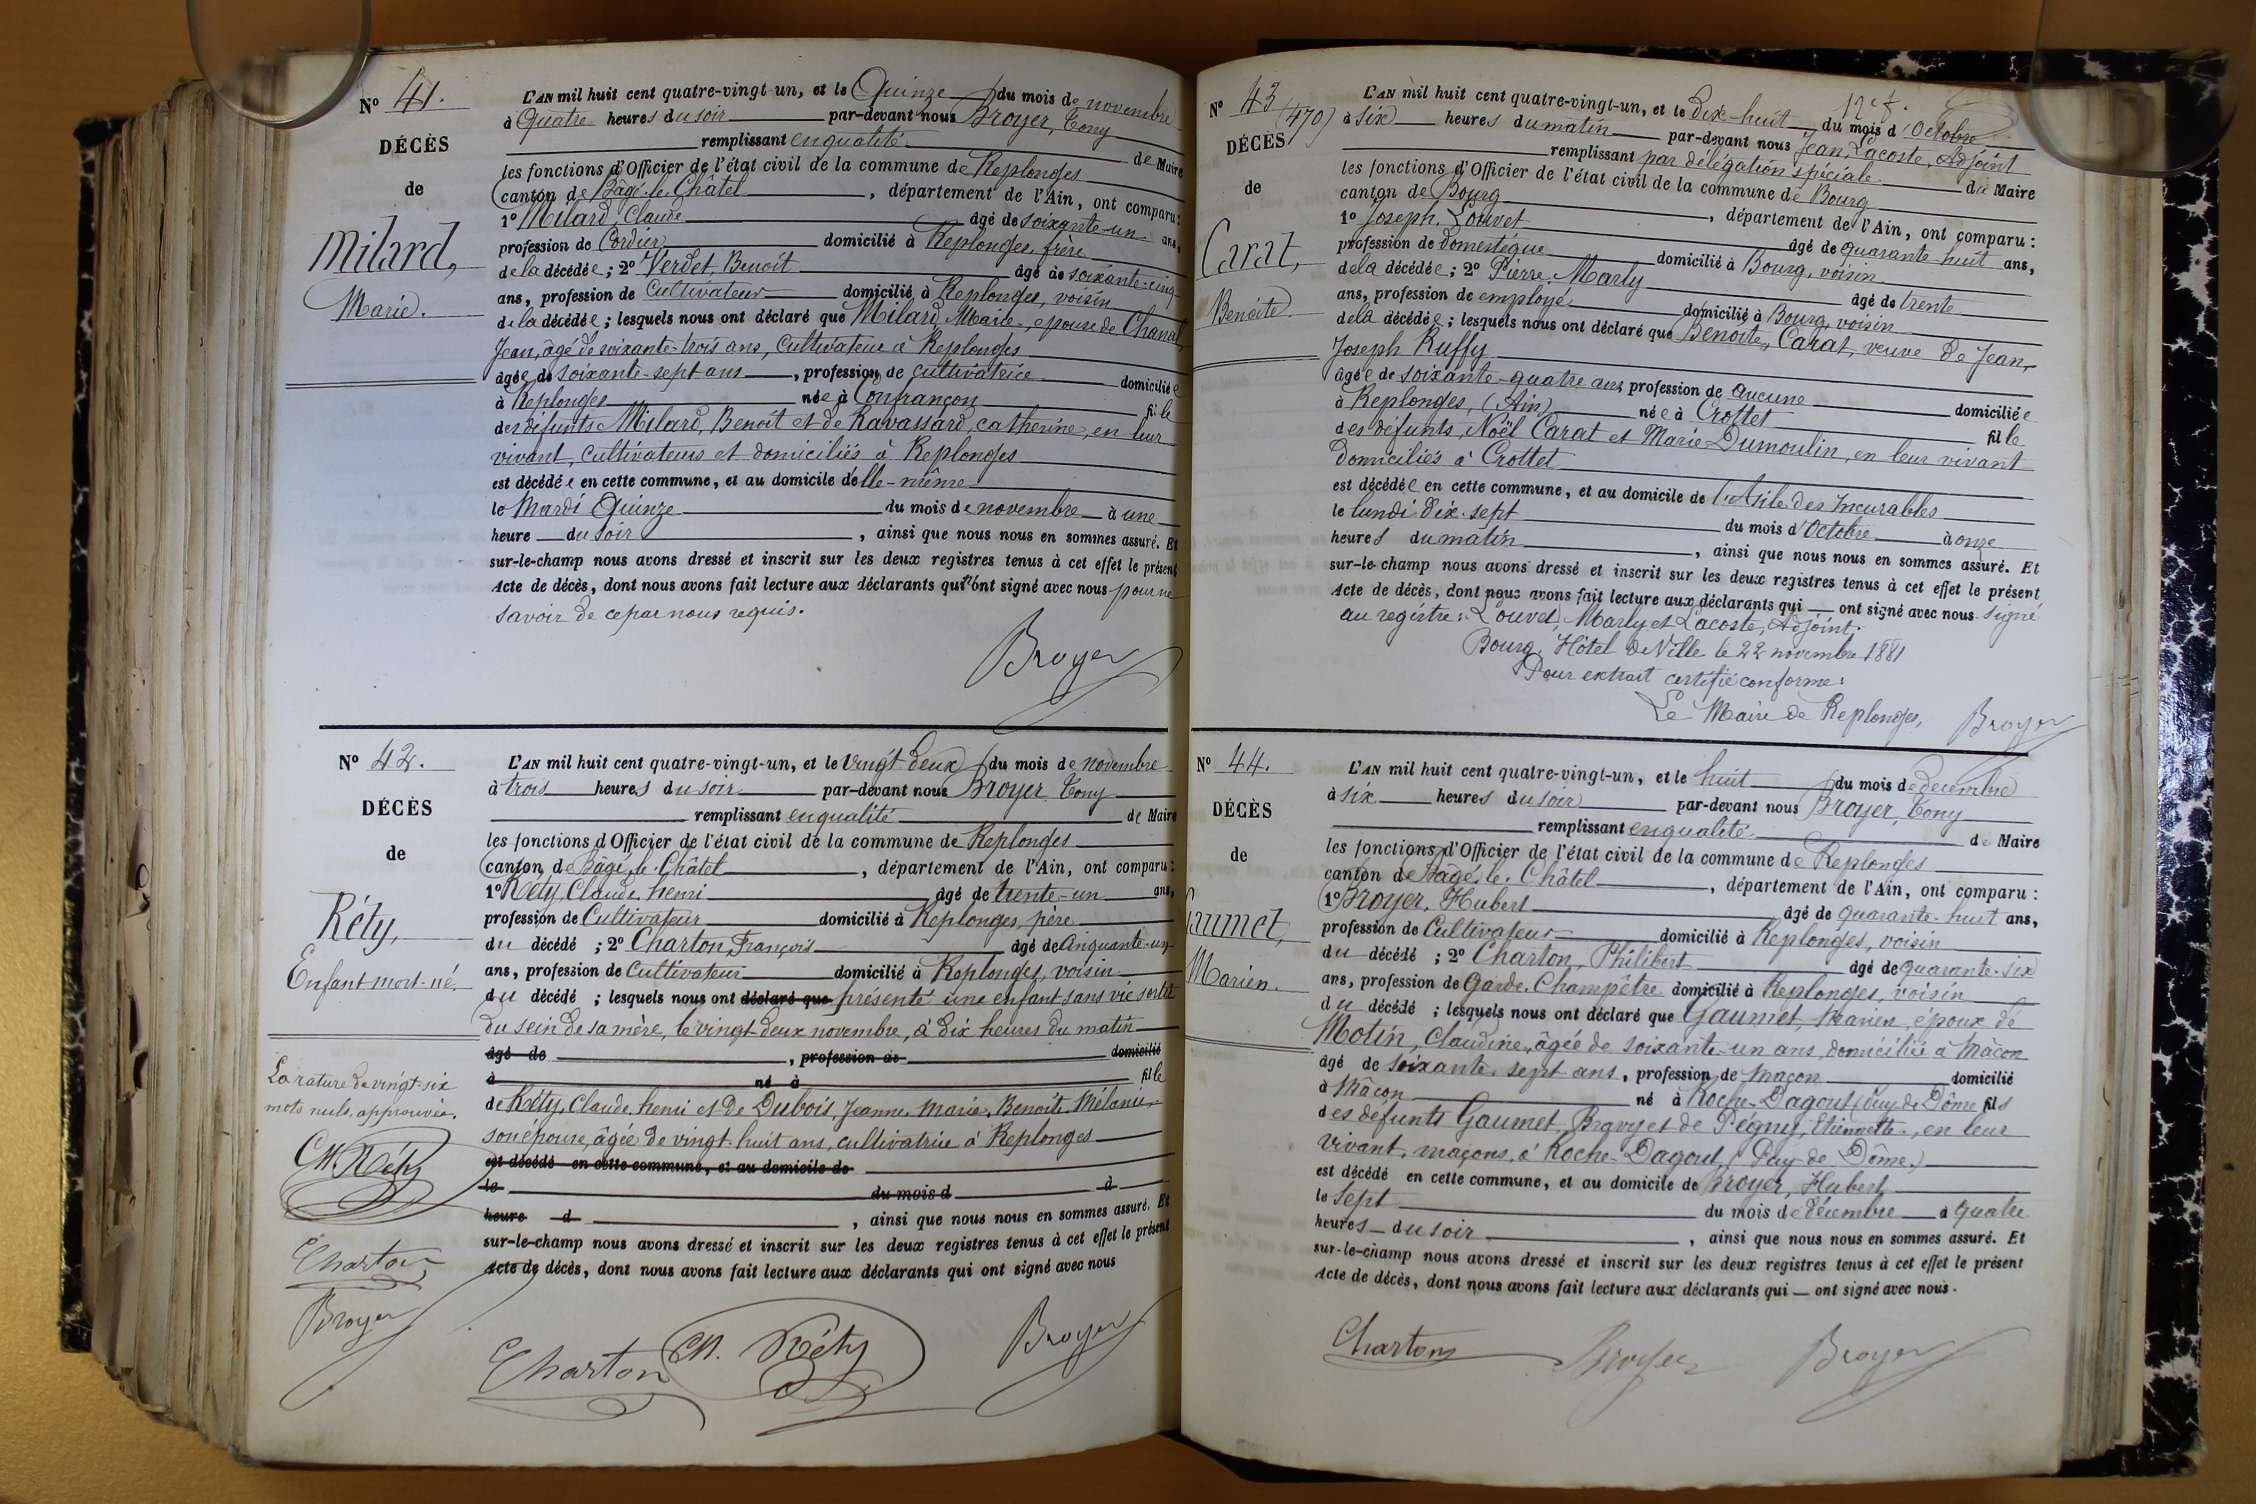 N° 41.
DÉCÈS
de
Milard,
Marie.
L'AN mil huit cent quatre-vingt un, et le Quinze du mois de novembre
à Quatre heures du soir par-devant nous Broyer, Tony
remplissant en qualité de Maire
les fonctions d'Officier de l'état civil de la commune de Replonges
canton de Bâgé-le-Châtel, département de l'Ain, ont comparu:
1° Milard Claude âgé de soixante-un ans,
profession de Cordier domicilié à Replonges, frère
de la décédée; 2° Verdet, Benoît âgé de soixante-cinq
ans, profession de Cultivateur domicilié à Replonges, voisin
de la décédée; lesquels nous ont déclaré que Milard Marie, épouse de Chanal,
Jean, âgé de soixante-trois ans, Cultivateur à Replonges
âgée de soixante-sept ans, profession de cultivatrice domiciliée
à Replonges née à Confrançon fille
des défunts Milard, Benoît et de Ravassard, catherine, en leur
vivant, cultivateurs et domiciliés à Replonges
est décédée en cette commune, et au domicile d'elle-même
le Mardi Quinze du mois de novembre à une
heure du soir, ainsi que nous nous en sommes assuré. Et
sur-le-champ nous avons dressé et inscrit sur les deux registres tenus à cet effet le présent
Acte de décès, dont nous avons fait lecture aux déclarants qui n'ont signé avec nous pour ne
savoir de ce par nous requis.
Broyer
N° 42.
DÉCÈS
de
Réty,
Enfant mort-né.
La rature de vingt-six
mots nuls, approuvée.
CH. Réty
Charton
Broyer
L'AN mil huit cent quatre-vingt-un, et le vingt deux du mois de novembre
à trois heures du soir par-devant nous Broyer Tony
remplissant en qualité de Maire
les fonctions d'Officier de l'état civil de la commune de Replonges
canton de Bâgé-le-Châtel, département de l'Ain, ont comparu:
1° Réty, Claude, henri âgé de trente-un ans,
profession de Cultivateur domicilié à Replonges, père
du décédé; 2° Charton, François âgé de cinquante-un
ans, profession de cultivateur domicilié à Replonges, voisin
du décédé; lesquels nous ont déclaré que présenté une enfant sans vie sortit
du sein de sa mère, le vingt deux novembre, à dix heures du matin
âgé de, profession de domicilié
à né à fille
de Réty, Claude, henri et de Dubois, Jeanne, Marie, Benoite, Mélanie,
son épouse, âgée de vingt-huit ans, cultivatrice à Replonges
est décédé en cette commune, et au domicile de
le du mois d à
heure d, ainsi que nous nous en sommes assuré. Et
sur-le-champ nous avons dressé et inscrit sur les deux registres tenus à cet effet le présent
Acte de décès, dont nous avons fait lecture aux déclarants qui ont signé avec nous
Charton CH. Réty Broyer
N° 43
(470)
DÉCÈS
de
Carat,
Benoite.
L'AN mil huit cent quatre-vingt-un, et le dix-huit du mois d'Octobre
à six heures du matin par-devant nous Jean, Lacoste, Adjoint
remplissant par délégation spéciale du Maire
les fonctions d'Officier de l'état civil de la commune de Bourg
canton de Bourg, département de l'Ain, ont comparu:
1° Joseph, Louvet âgé de quarante-huit ans,
profession de domestique domicilié à Bourg, voisin
de la décédée; 2° Pierre Marly âgé de trente
ans, profession de employé domicilié à Bourg, voisin
de la décédée; lesquels nous ont déclaré que Benoite, Carat, veuve de Jean,
Joseph Ruffy
âgée de soixante-quatre ans profession de aucune domiciliée
à Replonges, (Ain) née à Crottet fille
des défunts, Noël Carat et Marie Dumoulin, en leur vivant
domiciliés à Crottet
est décédée en cette commune, et au domicile de l'Asile des Incurables
le lundi dix-sept du mois d'Octobre à onze
heures du matin, ainsi que nous nous en sommes assuré. Et
sur-le-champ nous avons dressé et inscrit sur les deux registres tenus à cet effet le présent
Acte de décès, dont nous avons fait lecture aux déclarants qui ont signé avec nous signé
au registre: Louvet, Marly et Lacoste, Adjoint.
Bourg, Hôtel de Ville le 22 novembre 1881
Pour extrait certifié conforme:
Le Maire de Replonges, Broyer
N° 44.
DÉCÈS
de
Gaumet,
Marien.
L'AN mil huit cent quatre-vingt-un, et le huit du mois de décembre
à six heures du soir par-devant nous Broyer, Tony
remplissant en qualité de Maire
les fonctions d'Officier de l'état civil de la commune de Replonges
canton de Bâgé-le-Châtel, département de l'Ain, ont comparu:
1° Broyer, Hubert âgé de quarante-huit ans,
profession de Cultivateur domicilié à Replonges, voisin
du décédé; 2° Charton, Philibert âgé de quarante-six
ans, profession de Garde-Champêtre domicilié à Replonges, voisin
du décédé; lesquels nous ont déclaré que Gaumet, Marien, époux de
Motin, Claudine, âgée de soixante-un ans, domiciliée à Mâcon
âgé de soixante-sept ans, profession de maçon domicilié
à Mâcon né à Roche-Dagout (Puy-de-Dôme fils
des défunts Gaumet, Bravy et de Pégny, Etiennette, en leur
vivant, maçons, à Roche-Dagout (Puy de Dôme)
est décédé en cette commune, et au domicile de Broyer, Hubert
le sept du mois de décembre à quatre
heures du soir, ainsi que nous nous en sommes assuré. Et
sur-le-champ nous avons dressé et inscrit sur les deux registres tenus à cet effet le présent
Acte de décès, dont nous avons fait lecture aux déclarants qui ont signé avec nous.
Charton Broyer Broyer